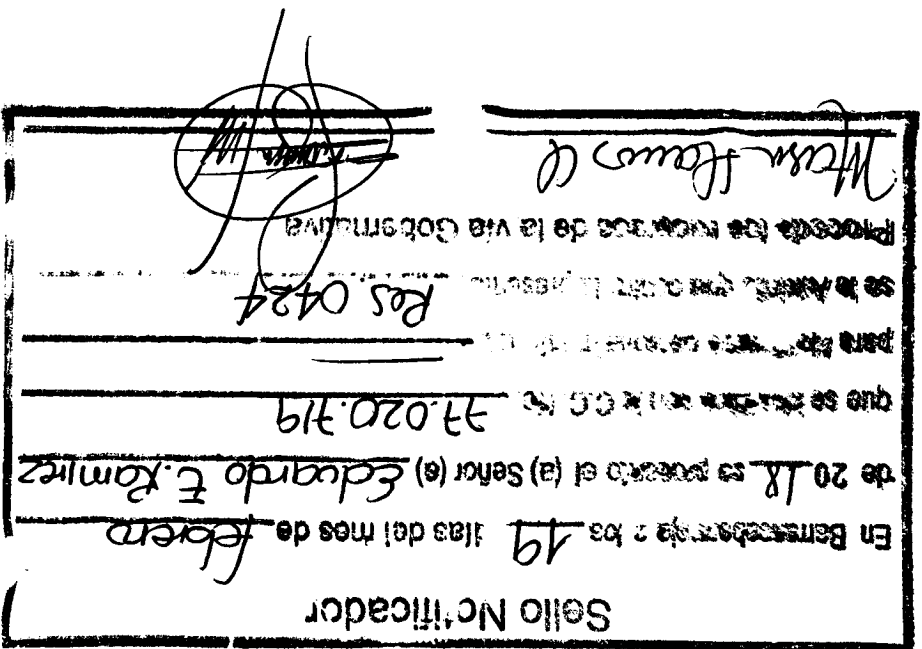 Sello Notificador
En Barrancabermeja a los 19 días del mes de febrero
de 2018 se presentó el (a) Señor (a) Eduardo E. Ramirez
que se identifica con la C.C. No 77.020.719
para
se le Advierte que contra la presente Res. 0424
Proceda los recursos de la vía Gobernativa